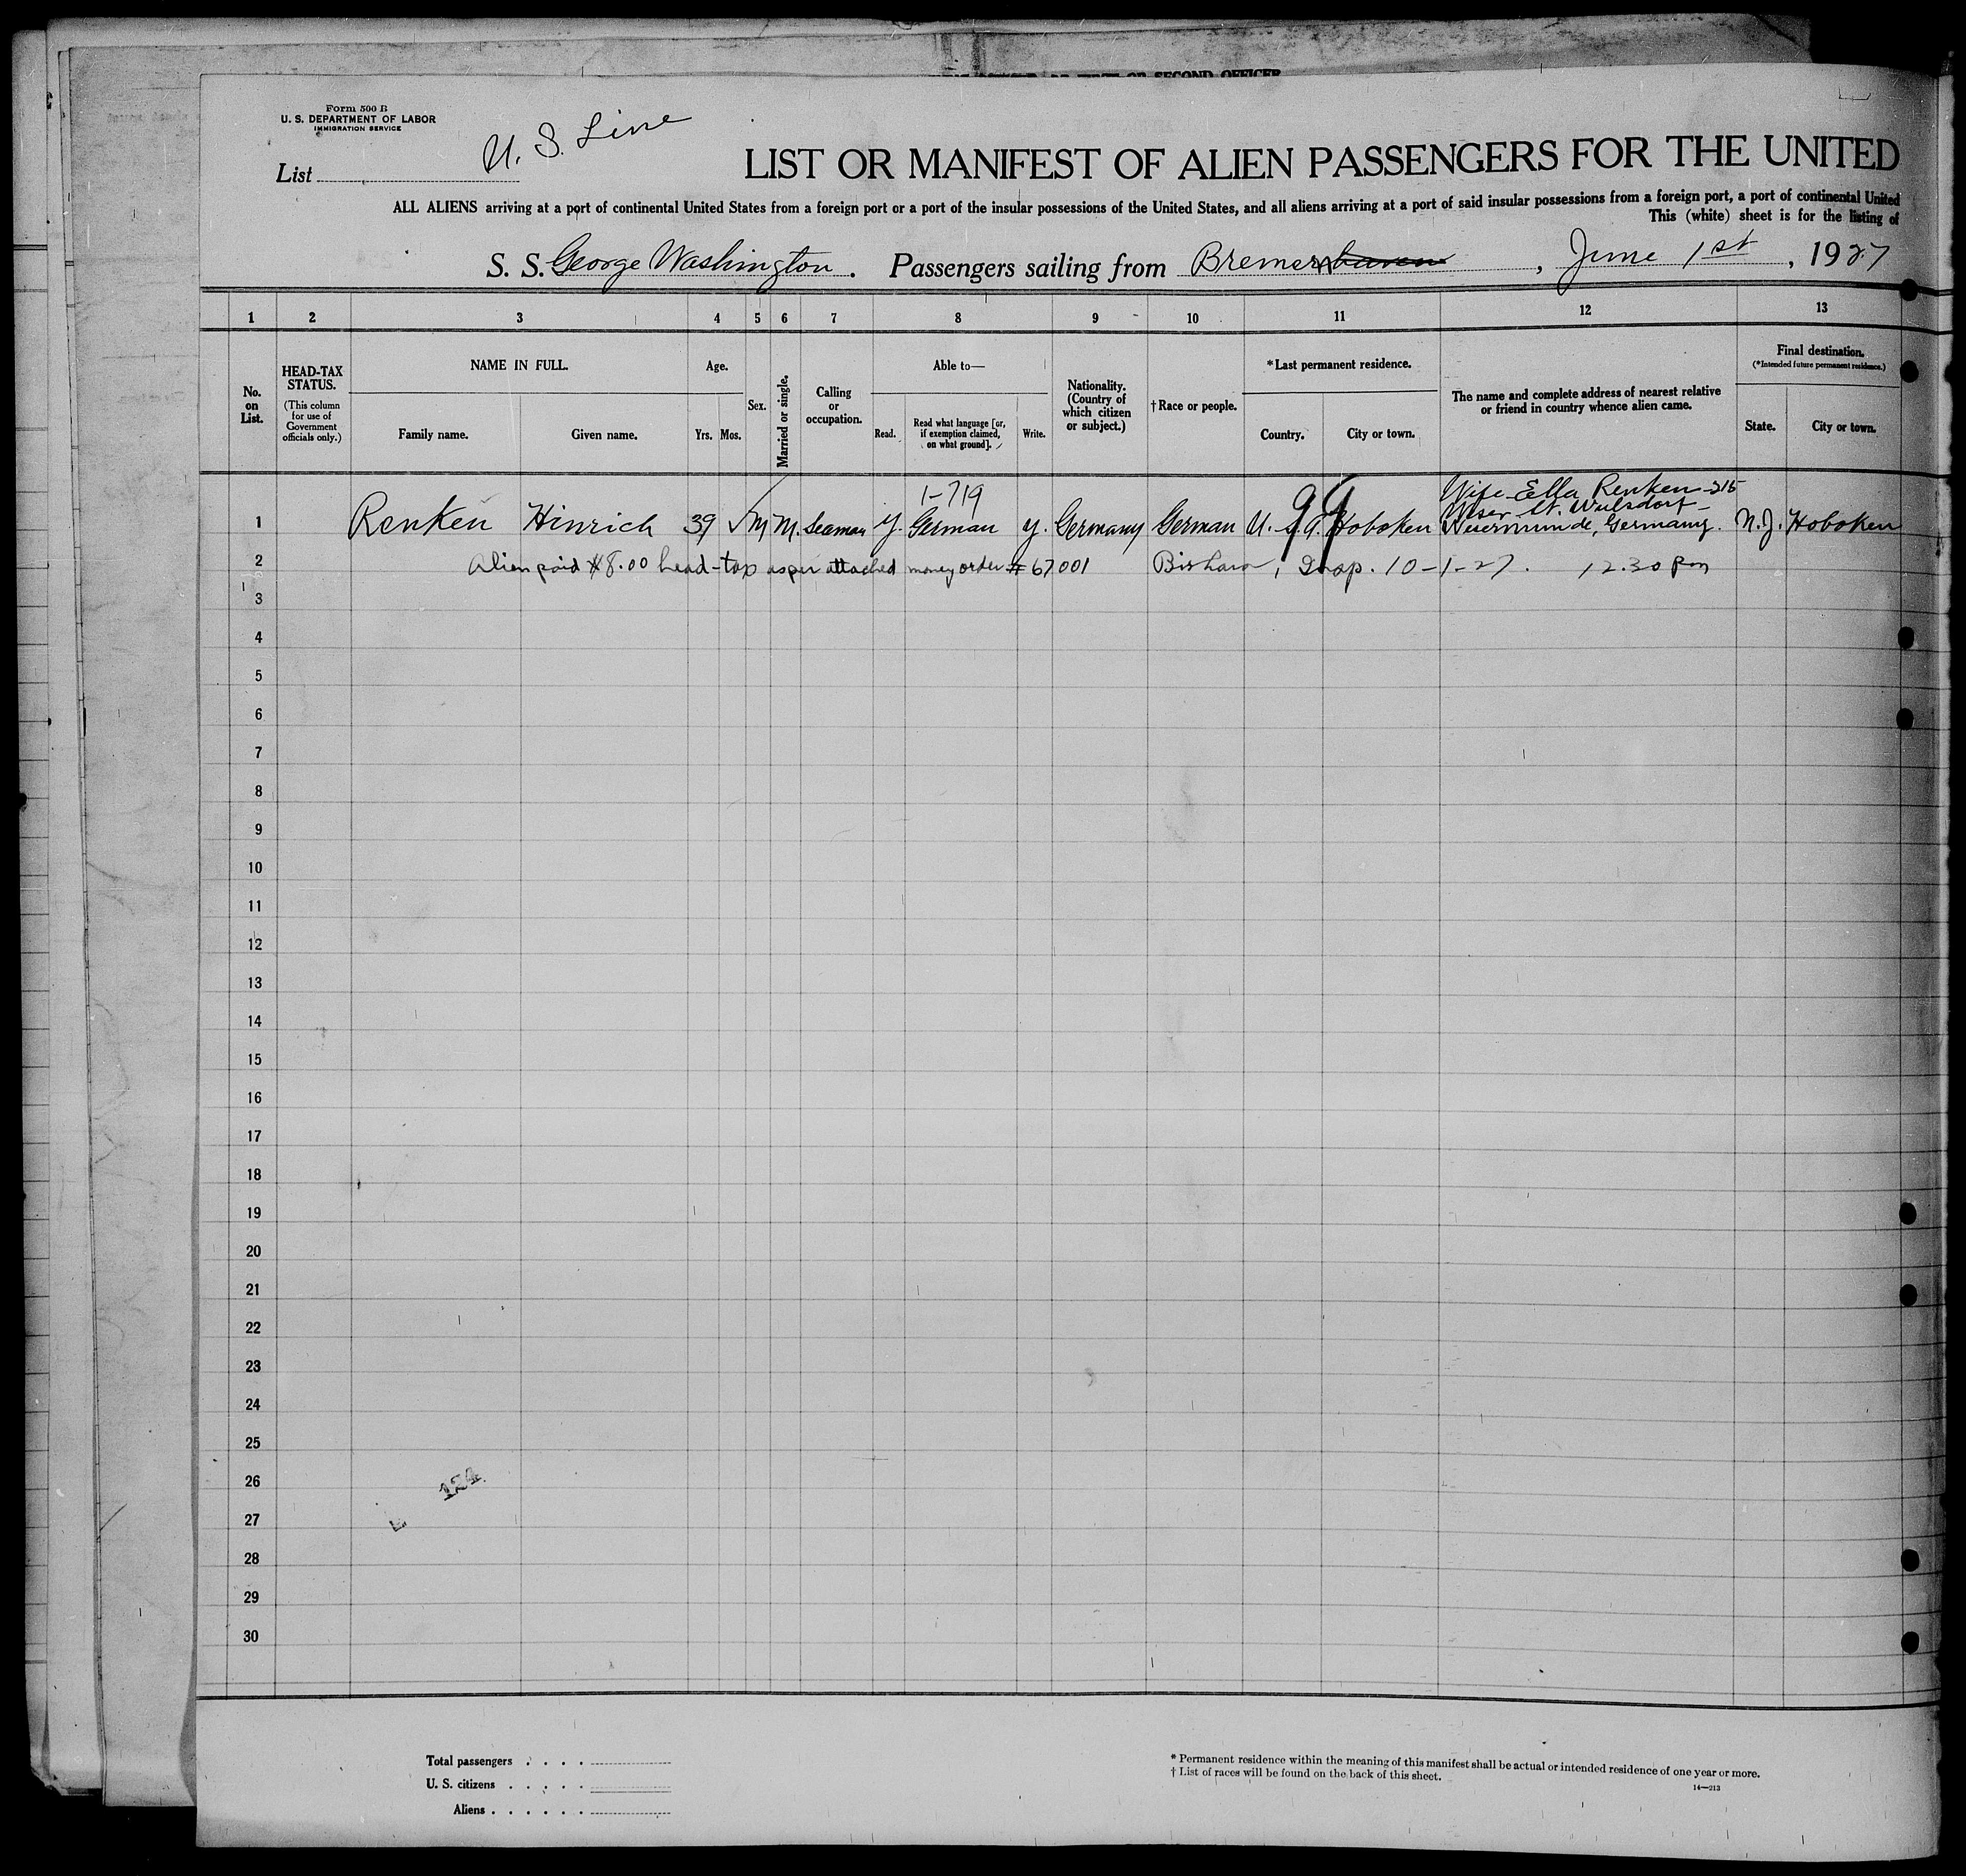 OR SECOND OFFICER
Form 500 B
U. S. DEPARTMENT OF LABOR
IMMIGRATION SERVICE
U. S. Line
List
LIST OR MANIFEST OF ALIEN PASSENGERS FOR THE UNITED
ALL ALIENS arriving at a port of continental United States from a foreign port or a port of the insular possessions of the United States, and all aliens arriving at a port of said insular possessions from a foreign port, a port of continental United
This (white) sheet is for the listing of
S. S. George Washington. Passengers sailing from Bremerhaven, June 1st, 1927
1 2 3 4 5 6 7 8 9 10 11 12 13
No. on List.
HEAD-TAX STATUS.
(This column for use of Government officials only.)
NAME IN FULL.
Family name. Given name.
Age.
Yrs. Mos.
Sex.
Married or single.
Calling or occupation.
Able to—
Read.
Read what language [or, if exemption claimed, on what ground].
Write.
Nationality. (Country of which citizen or subject.)
†Race or people.
*Last permanent residence.
Country. City or town.
The name and complete address of nearest relative or friend in country whence alien came.
Final destination.
(*Intended future permanent residence.)
State. City or town.
1-719
99
Wife Ella Renken-215
Weser St. Wulsdorf-
Wesermunde, Germany.
1 Renken Hinrich 39 M M. Seaman Y. German Y. Germany German U.S.A. Hoboken N.J. Hoboken
2 Alien paid $8.00 head-tax as per attached money order # 67001 Insp. 10-1-27. 12.30 pm
3
4
5
6
7
8
9
10
11
12
13
14
15
16
17
18
19
20
21
22
23
24
25
26
124
27
28
29
30
Total passengers . . . .
U. S. citizens . . . . .
Aliens . . . . . .
* Permanent residence within the meaning of this manifest shall be actual or intended residence of one year or more.
† List of races will be found on the back of this sheet.
14—213